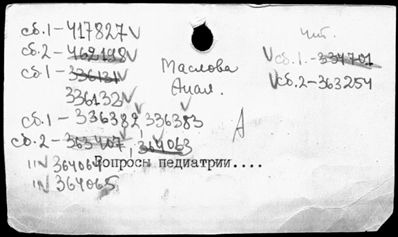 сб.1-417827
сб.2-462199
сб.1-336131
336132
сб.1-336382, 336383
сб.2-363407, 364063
364064
364065
Маслова
Анал.
А
Вопросы педиатрии....
чит.
сб.1.-334701
сб.2-363254